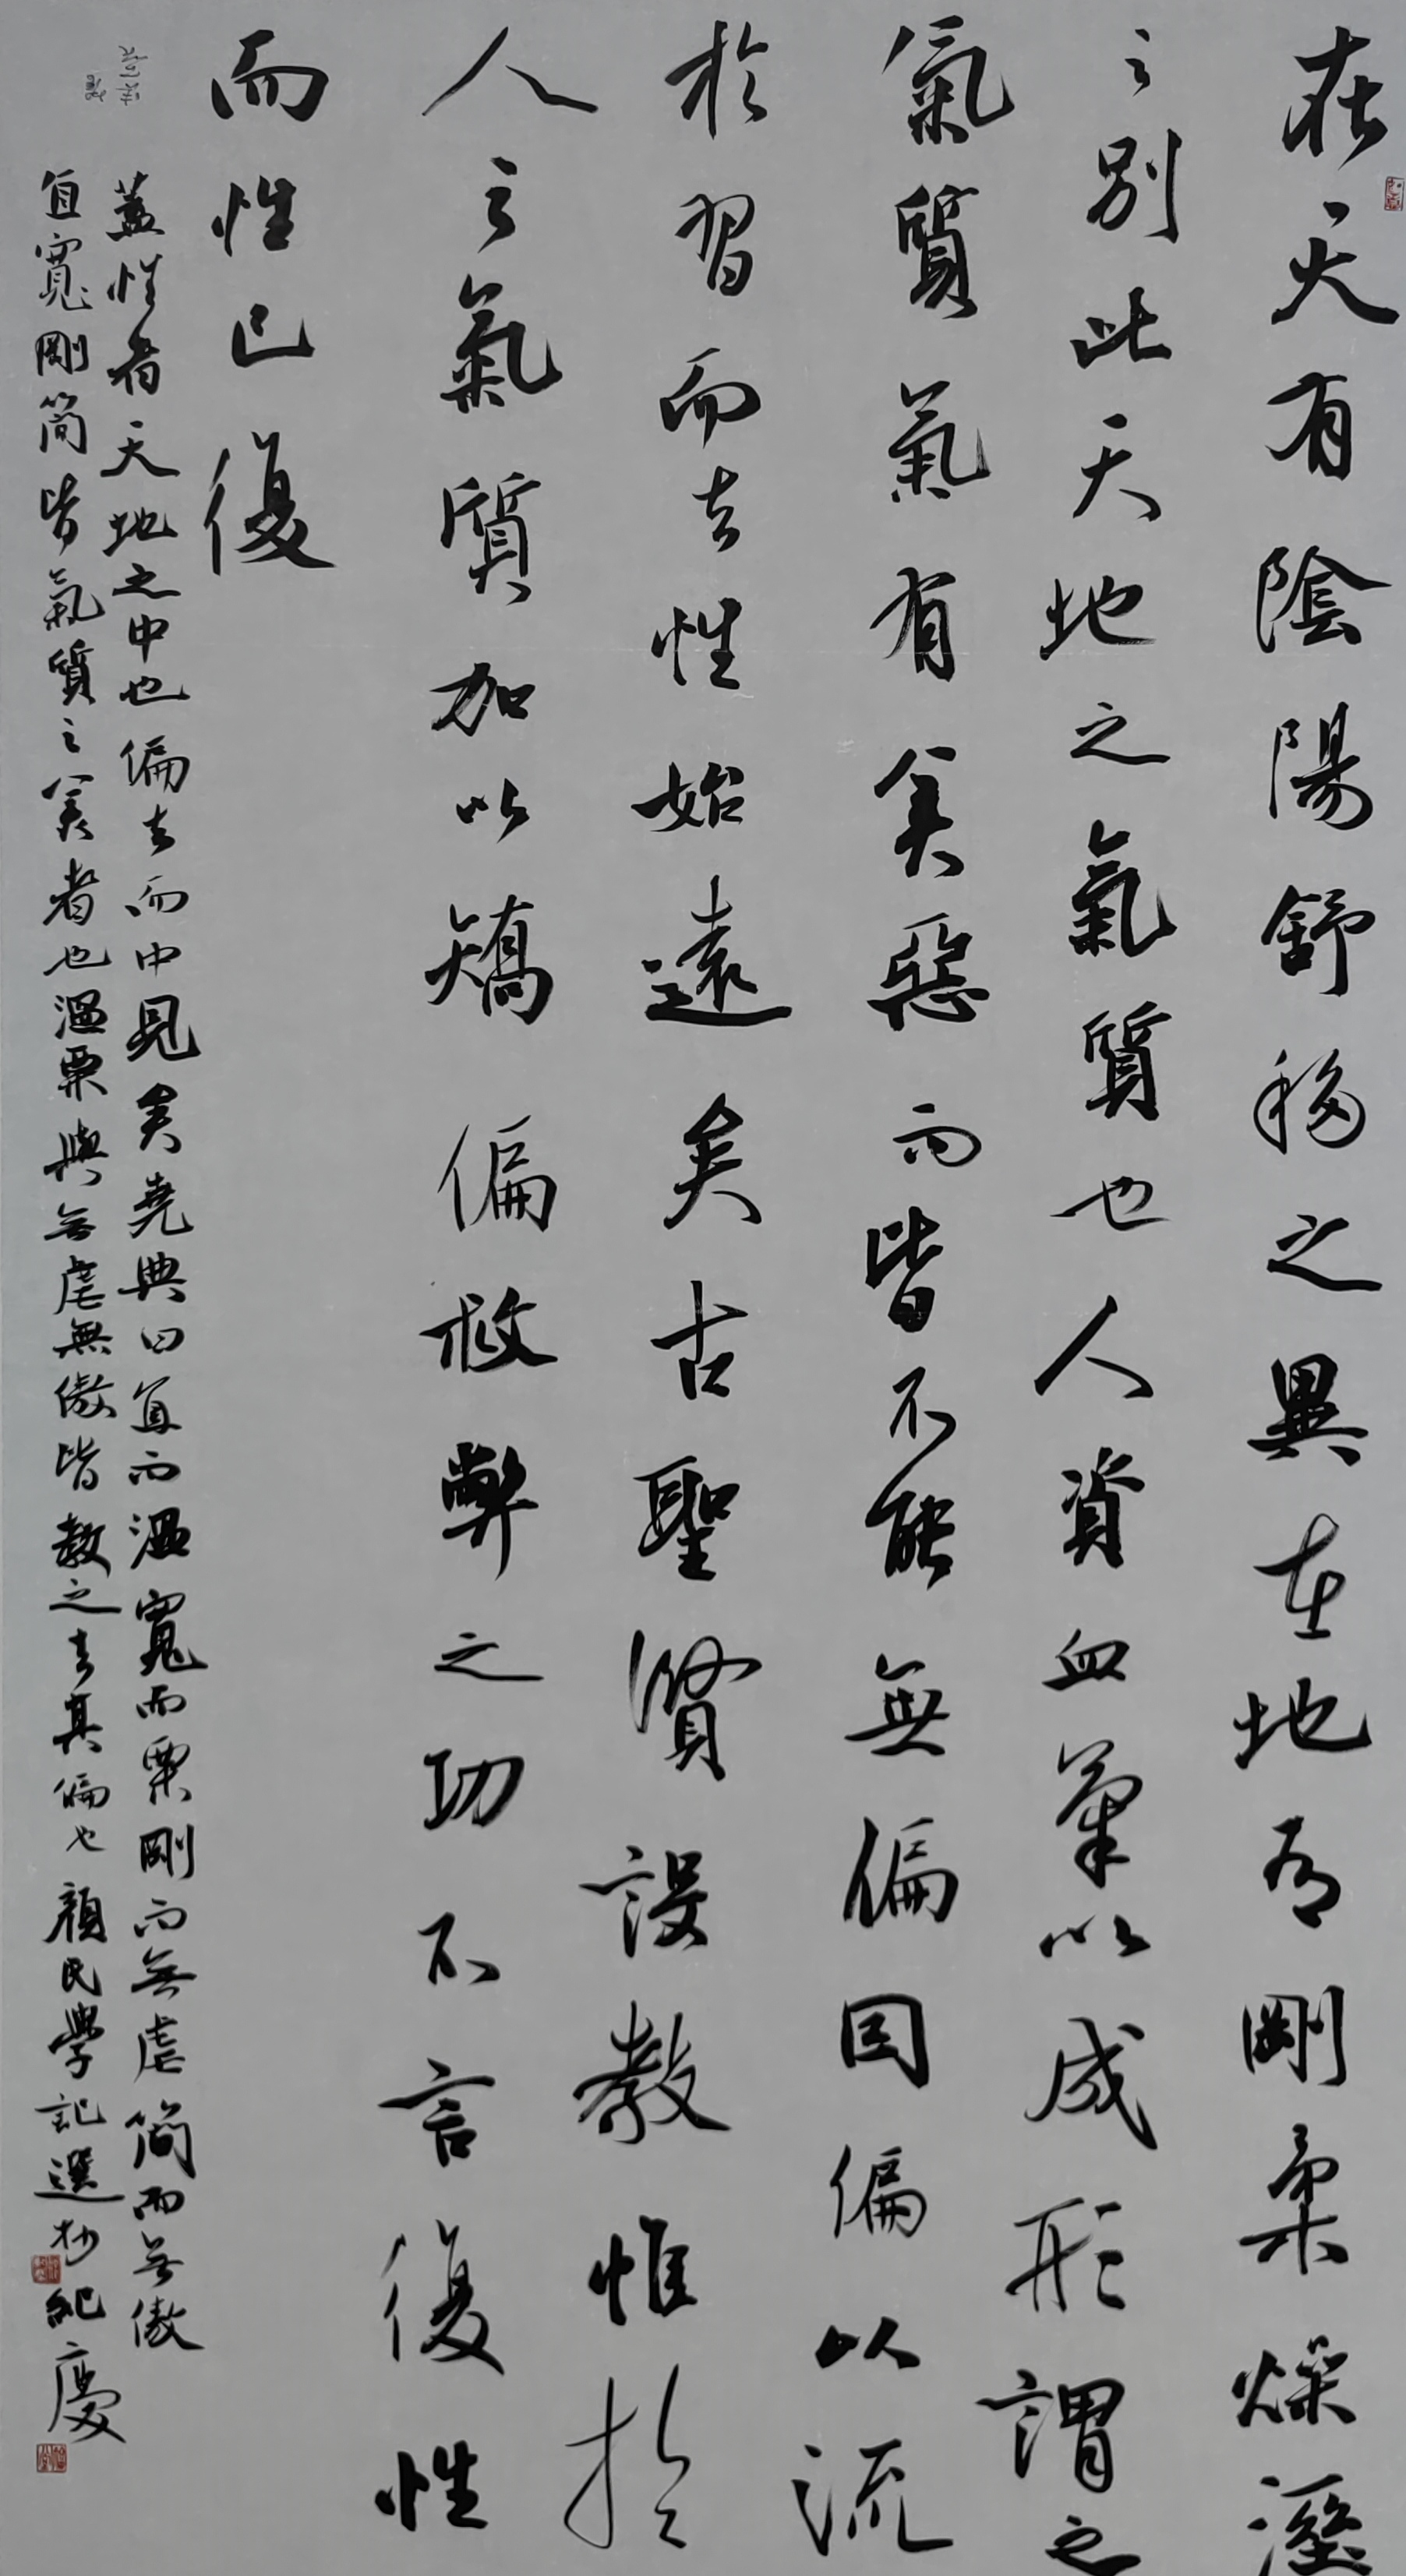 在天有陰陽舒移之異在地有剛柔燥溼
之別此天地之氣質也人資血氣以成形謂之
氣質氣有美惡而皆不能無偏因偏以流
於習而去性始遠矣古聖賢設教惟於
人之氣質加以矯偏救弊之功不言復性
而性已復
蓋性者天地之中也偏去而中見矣堯典曰直而溫寬而栗剛而無虐簡而無傲
直寬剛簡皆氣質之美者也溫栗與無虐無傲皆教之去其偏也顏氏學記選抄紀慶